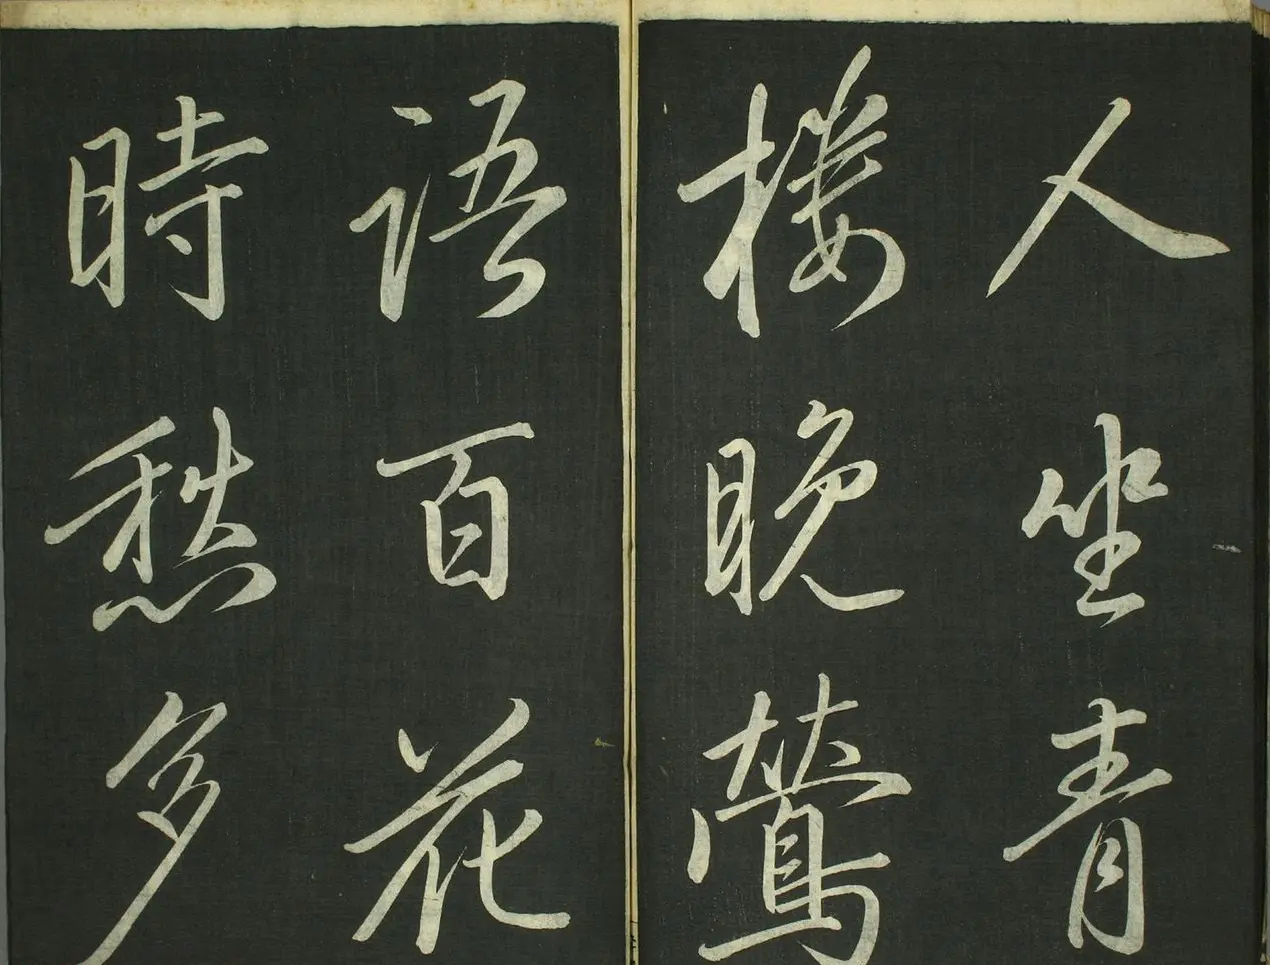 人坐青
樓晚鶯
語百花
時愁多